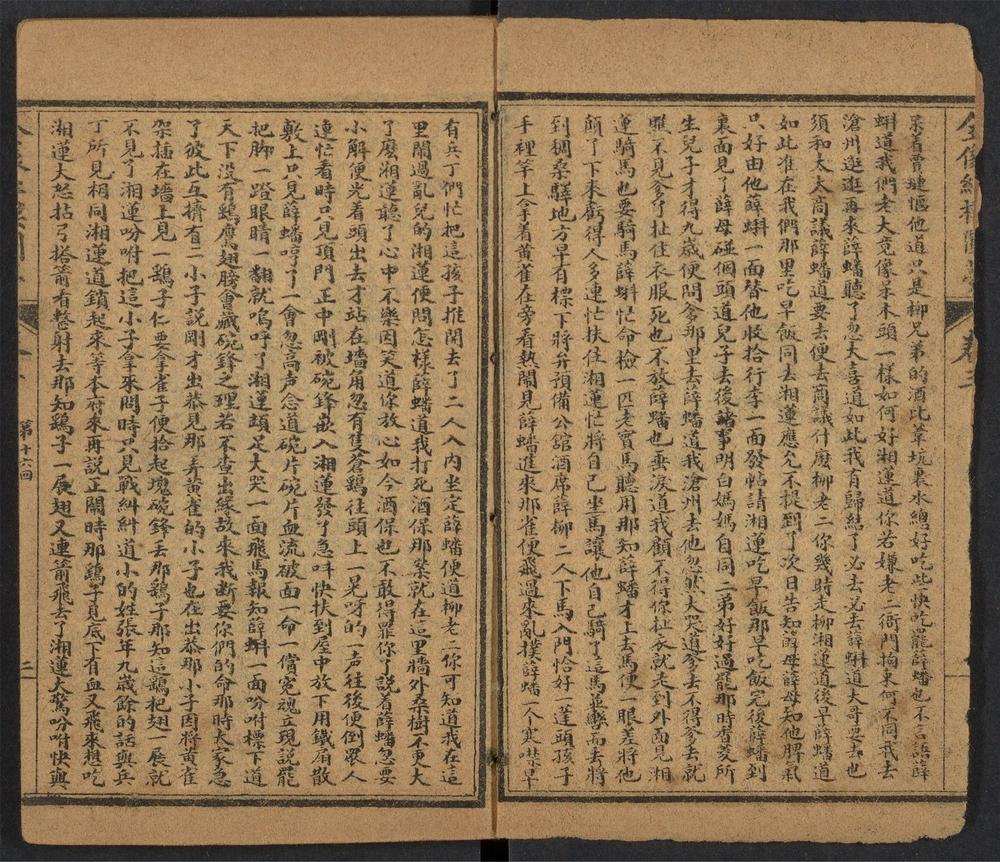 呆着賈璉慪他道只是柳兄弟的酒比草坑裏水總好吃些快吃罷薛蟠也不言語薛
蝌道我們老大竟像呆木頭一樣如何好湘蓮道你若嫌老二衙門拘束何不同我去
滄州逛逛再來薛蟠聽了忽大喜道如此我有歸結了必去必去薛蝌道大哥要去也
須和太太商議薛蟠道要去便去商議什麽柳老二你幾時走柳湘蓮道後早薛蟠道
如此准在我們那里吃早飯同去湘蓮應允不提到了次日告知薛母薛母知他脾氣
只好由他薛蝌一面替他收拾行李一面發帖請湘蓮吃早飯那早吃飯完後薛蟠到
裏面見了薛母碰個頭道兒子去後諸事明白媽媽自同二弟好好過罷那時香菱所
生兒子才得九歲便問爹那里去薛蟠道我滄州去他忽然大哭道爹去不得爹去就
瞧不見爹了扯住衣服死也不放薛蟠也垂淚道我顧不得你扯衣就走到外面見湘
蓮騎馬也要騎馬薛蝌忙命檢一匹老實馬聽用那知薛蟠才上去馬便一眼差將他
顛了下來虧得人多連忙扶住湘蓮忙將自己坐馬讓他自己騎了這馬並轡而去將
到稠桑驛地方早有標下將弁預備公館酒席薛柳二人下馬入門恰好一蓬頭孩子
手裡竿上拿着黄雀在旁看熱鬧見薛蟠進來那雀便飛過來亂撲薛蟠一个寒噤早
有兵丁們忙把這孩子推開去了二人入內坐定薛蟠便道柳老二你可知道我在這
里鬧過亂兒的湘蓮便問怎樣薛蟠道我打死酒保那案就在這里牆外桑樹不更大
了麽湘蓮聽了心中不樂因笑道你放心如今酒保也不敢得罪你了説着薛蟠忽要
小解便光着頭出去才站在墻角忽有隻蒼鷂往頭上一晃呀的一声往後便倒衆人
連忙看時只見頂門正中剛被碗鋒嵌入湘蓮發了急叫快扶到屋中放下用鐵扇散
敷上只見薛蟠哼了一會忽高声念道碗片碗片血流破面一命一償冤魂立現説罷
把脚一蹬眼睛一翻就嗚呼了湘蓮頭足大哭一面飛馬報知薛蝌一面吩咐標下道
天下没有鷂鷹翅膀會藏碗鋒之理若不查出緣故來我斷要你們的命那時大家急
了彼此互擠有二小子説剛才出恭見那弄黄雀的小子也在出恭那小子因將黄雀
架插在墻上見一鷂子仁要拿雀子便拾起塊碗鋒去那鷂子那知這鷂把翅一展就
不見了湘蓮吩咐把這小子拿來問時只見戰糾糾道小的姓張年九歲餘的話與兵
丁所見相同湘蓮道鎖起來等本府來再説正鬧時那鷂子見底下有血又飛來想吃
湘蓮大怒拈弓搭箭看整射去那知鷂子一展翅又連箭飛去了湘蓮大驚吩咐快與
第十六回
二
卷三